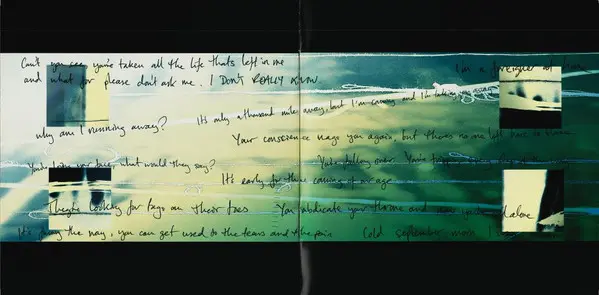 Can't you see you've taken all the life that's left in me
and what for please don't ask me. I DON'T REALLY KNOW
I'm a foreigner at
It's only a thousand miles away, but I'm coming and I'm taking you away
why am I running away?
Your conscience nags you again, but there's no one left here to blame
what would they say?
It's early for the coming of our age
They're looking for tags on their toes
You abdicate your throne and
alone
It's funny the way, you can get used to the tears and the pain
Cold september morn I